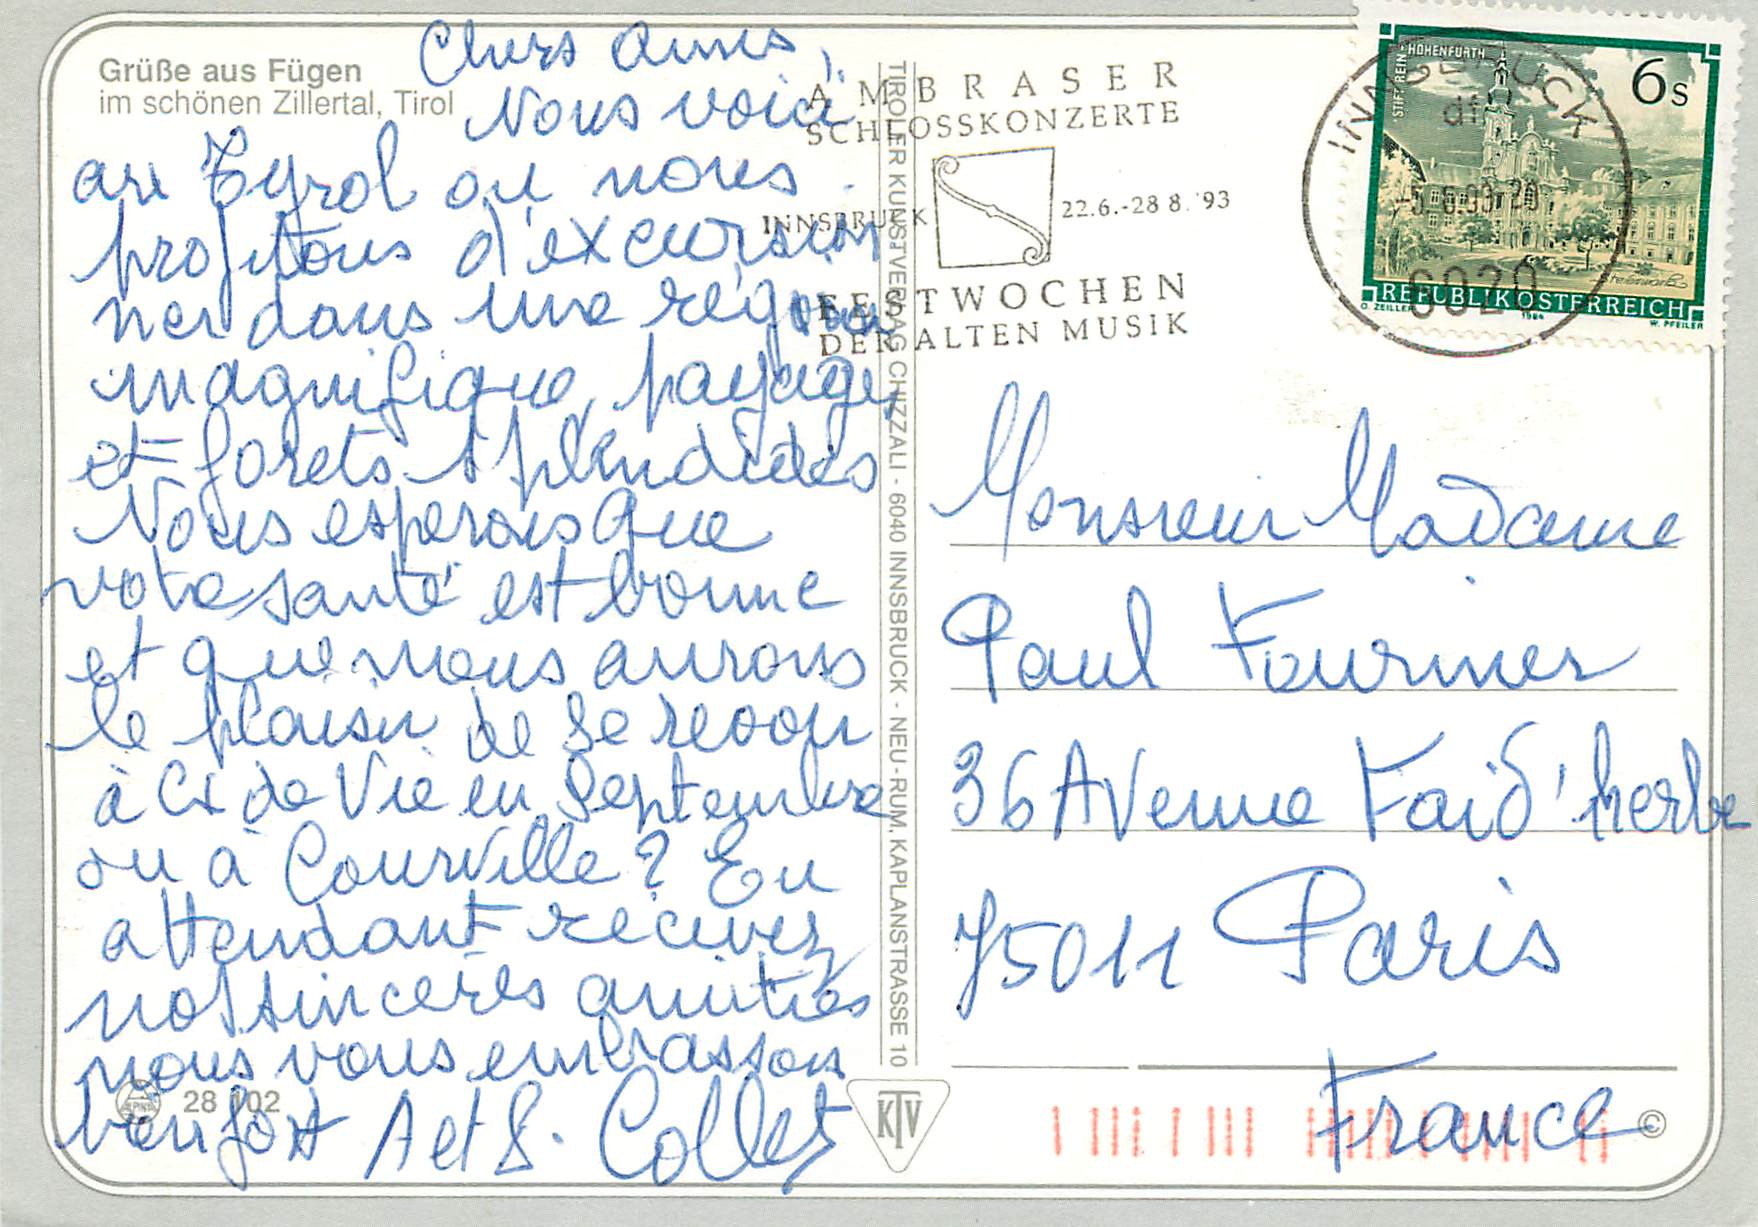 Grüße aus Fügen
im schönen Zillertal, Tirol
Chers Amis,
Nous voici
au Tyrol ou nous
profitons d'excursion
ner dans une région
magnifique, paysages
et forets splendides
Nous esperons que
votre santé est bonne
et que nous aurons
le plaisir de se revoir
à Cx de Vie en Septembre
ou à Courville? En
attendant recevez
nos sincères amitiés
nous vous embrassons
bien fort A et S. Collet
28 102
TIROLER KUNSTVERLAG CHIZZALI - 6040 INNSBRUCK - NEU-RUM, KAPLANSTRASSE 10
KTV
AMBRASER
SCHLOSSKONZERTE
INNSBRUCK 22.6.-28 8. '93
FESTWOCHEN
DER ALTEN MUSIK
INNSBRUCK
6020
STIFT REIN-HOHENFURTH
6s
REPUBLIK ÖSTERREICH
O. ZEILLER 1984 W. PFEILER
Monsieur Madame
Paul Fournier
36 Avenue Faid'herbe
75011 Paris
France
©